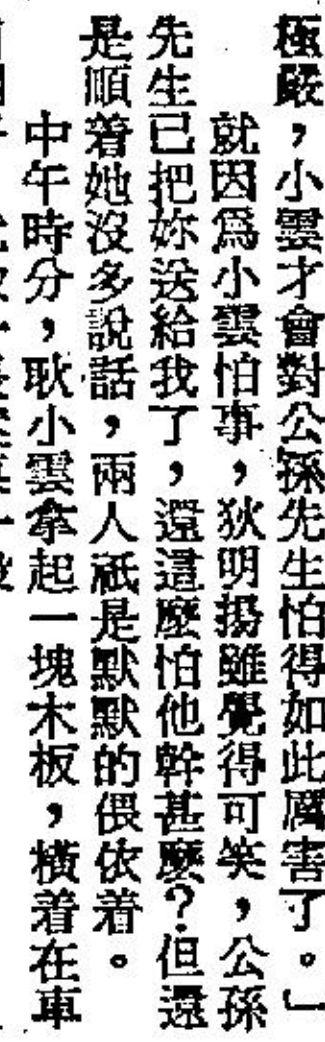 極嚴，小雲才會對公孫先生怕得如此厲害了。」
就因爲小雲怕事，狄明揚雖覺得可笑，公孫
先生已把妳送給我了，還這麼怕他幹甚麼？但還
是順着她沒多說話，兩人祇是默默的偎依着。
中午時分，耿小雲拿起一塊木板，橫着在車